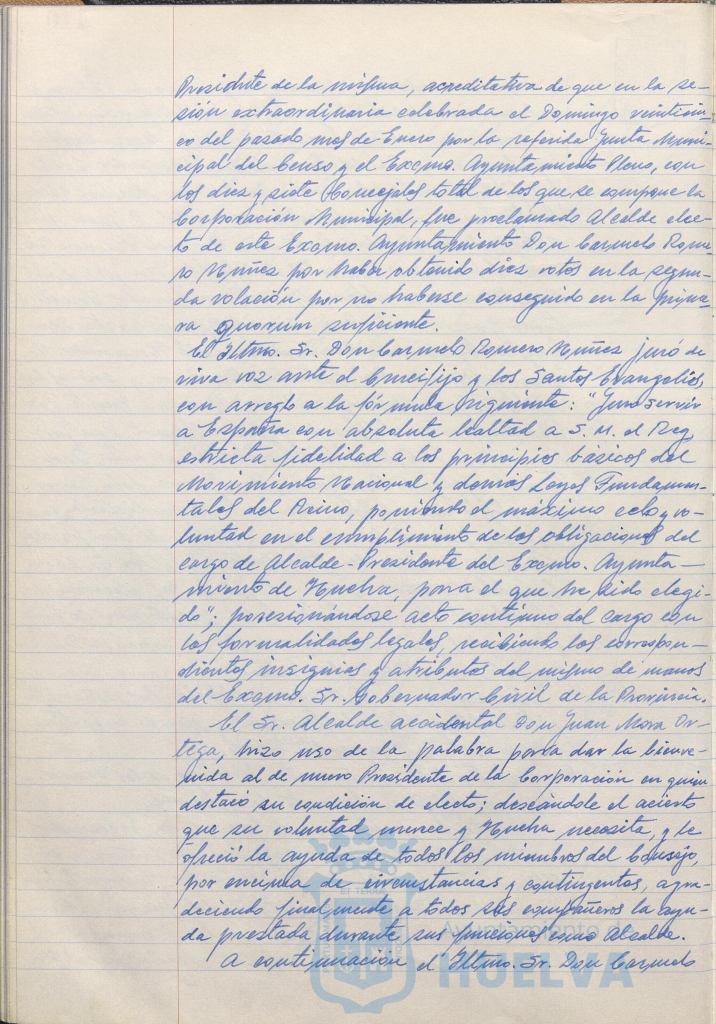 Presidente de la misma, acreditativa de que en la se-
sión extraordinaria celebrada el Domingo veintiun-
co del pasado mes de Enero por la referida Junta Muni-
cipal del Censo y el Excmo. Ayuntamiento Pleno, con
los diez y siete Concejales total de los que se compone la
Corporación Municipal, fue proclamado Alcalde elec-
to de este Excmo. Ayuntamiento Don Carmelo Rome-
ro Núñez por haber obtenido diez votos en la segun-
da votación por no haberse conseguido en la prime-
ra quorum suficiente.
El Iltmo. Sr. Don Carmelo Romero Núñez juró de
viva voz ante el Crucifijo y los Santos Evangelios,
con arreglo a la fórmula siguiente: "Juro servir
a España con absoluta lealtad a S. M. el Rey,
estricta fidelidad a los principios básicos del
Movimiento Nacional y demás Leyes Fundamen-
tales del Reino, poniendo el máximo celo y vo-
luntad en el cumplimiento de las obligaciones del
cargo de Alcalde-Presidente del Excmo. Ayunta-
miento de Huelva, para el que he sido elegi-
do"; posesionándose acto continuo del cargo con
las formalidades legales, recibiendo las correspon-
dientes insignias y atributos del mismo de manos
del Excmo. Sr. Gobernador Civil de la Provincia.
El Sr. Alcalde accidental Don Juan Mora Or-
tega, hizo uso de la palabra para dar la bienve-
nida al de nuevo Presidente de la Corporación en quien
destacó su condición de electo; deseándole el acierto
que su voluntad merece y Huelva necesita, y le
ofreció la ayuda de todos los miembros del Consejo,
por encima de circunstancias y contingentes, agra-
deciendo finalmente a todos sus compañeros la ayu-
da prestada durante sus funciones como Alcalde.
A continuación el Iltmo. Sr. Don Carmelo
Ayuntamiento de
HUELVA